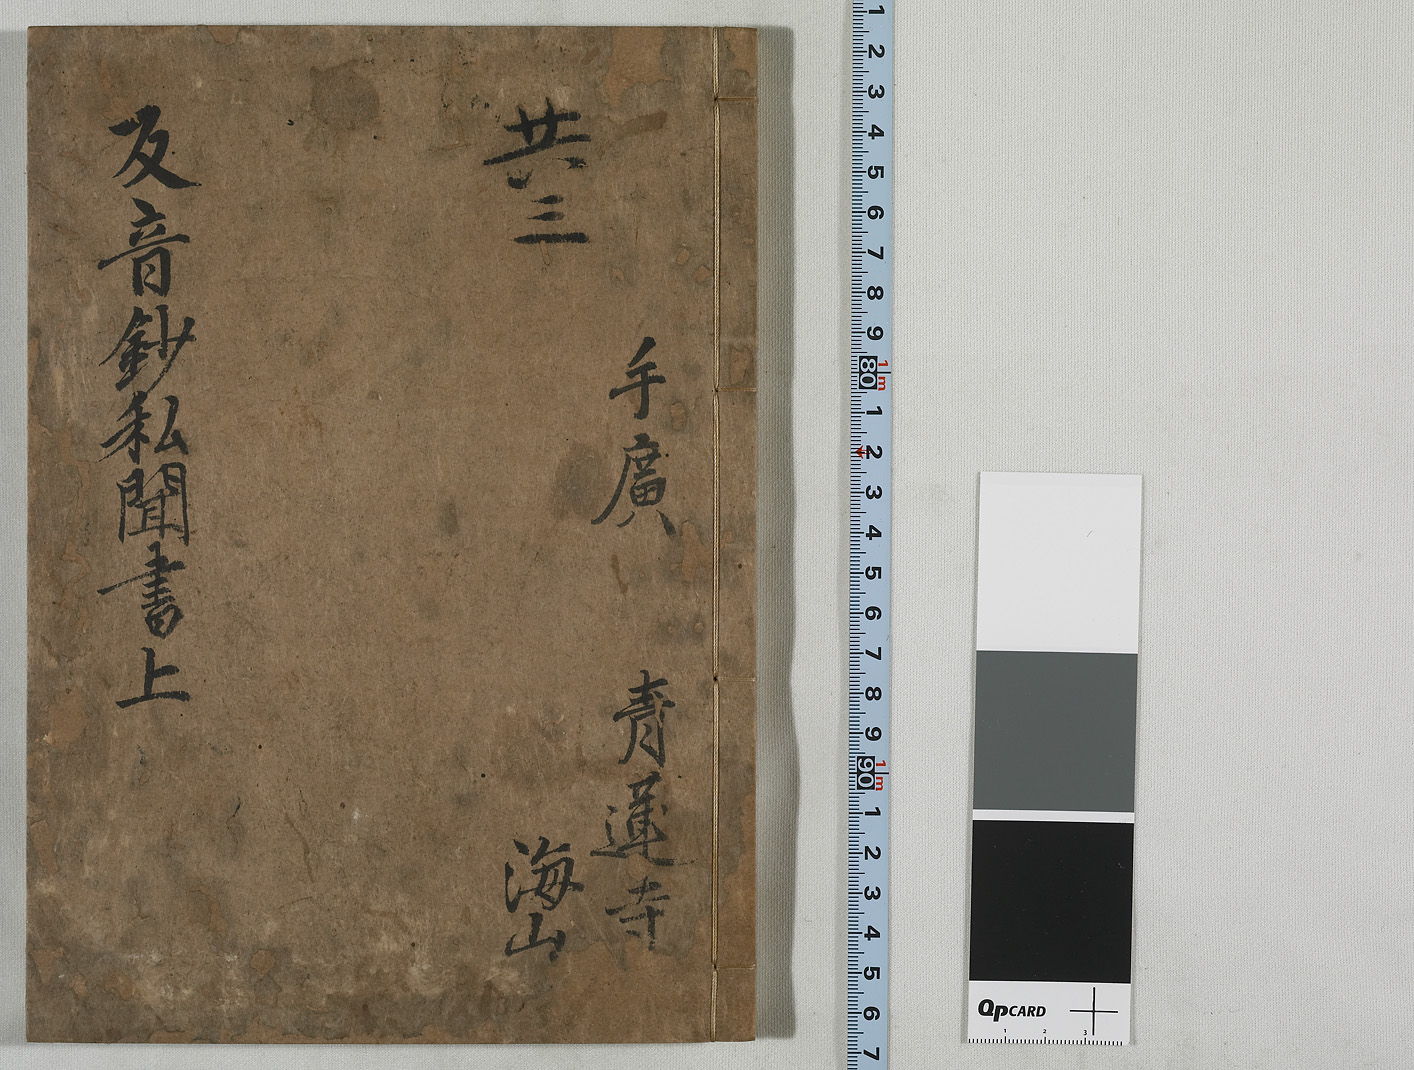 手廣 青蓮寺
共三
海山
反音鈔私聞書上
1 2 3 4 5 6 7 8 9 80 1m 1 2 3 4 5 6 7 8 9 90 1m 1 2 3 4 5 6 7
QPCARD
1 2 3